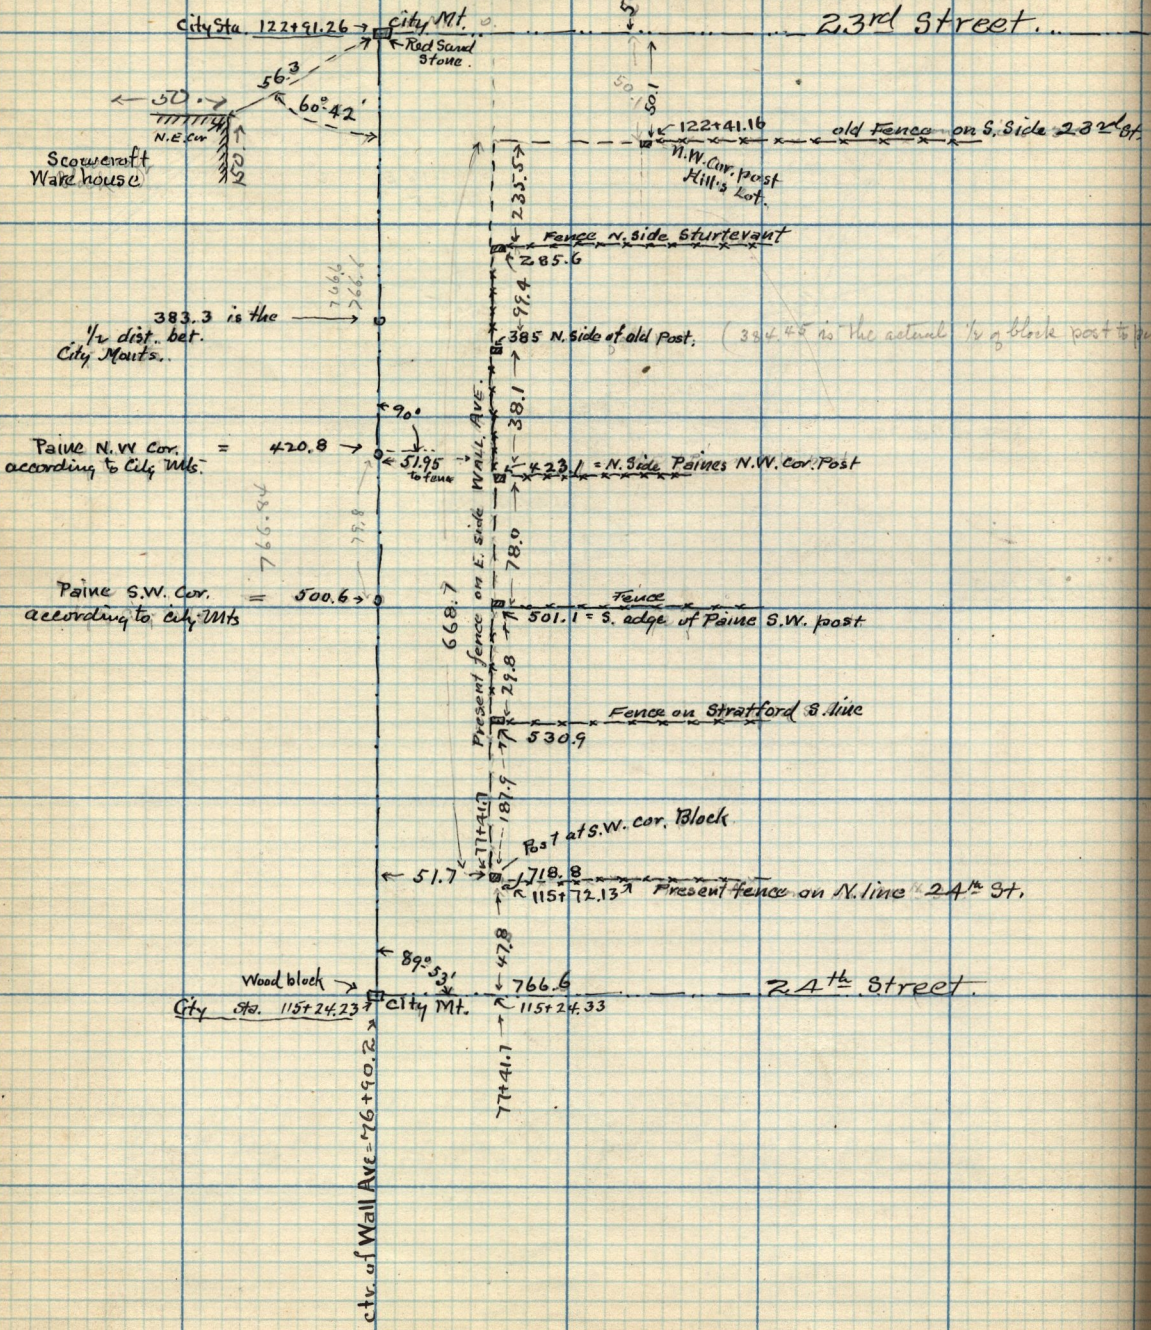 City Sta. 122+91.26
City Mt.
23rd Street.
Red Sand
Stone.
56.3
60° 42'
50.
N.E. Cor
50.
Scowcroft
Warehouse
50.1
50.1
122+41.16
old Fence on S. Side 23rd St.
N.W. Cor. post
Hill's Lot.
235.5
Fence N. side Sturtevant
285.6
99.4
766.6
766.6
383.3 is the
1/2 dist. bet.
City Mouts.
385 N. Side of old Post.
(384.45 is the actual 1/2 of block post to
38.1
90°
Paine N.W Cor. = 420.8
according to City Mts.
51.95
to fence
423.1 = N. Side Paines N.W. Cor. Post
766.84
79.8
78.0
Present fence on E. side WALL AVE.
668.7
Paine S.W. Cor. = 500.6
according to city Mts
Fence
501.1 = S. edge of Paine S.W. post
29.8
Fence on Stratford S. line
530.9
187.9
77+41.7
Post at S.W. cor. Block
51.7
718.8
115+72.13
Present fence on N. line 24th St.
47.8
89° 53'
Wood block
766.6
24th Street.
City Sta. 115+24.23
City Mt.
115+24.33
77+41.7
ctr. of Wall Ave = 76+90.2